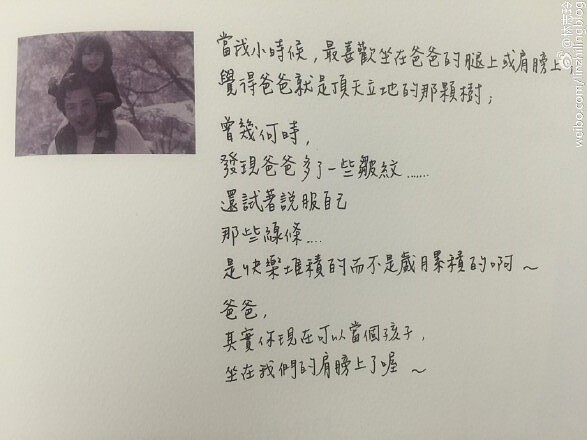 當我小時候，最喜歡坐在爸爸的腿上或肩膀上，
覺得爸爸就是頂天立地的那顆樹；
曾幾何時，
發現爸爸多了一些皺紋……
還試著說服自己
那些線條….
是快樂堆積的而不是歲月累積的啊～
爸爸，
其實你現在可以當個孩子，
坐在我們的肩膀上了喔～
@林志玲
weibo.com/linzhilingblog